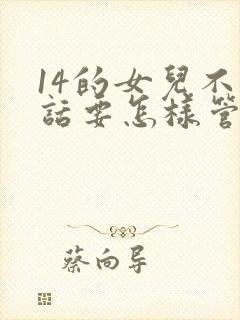 14的女兒不
話要怎樣管
蔡向导